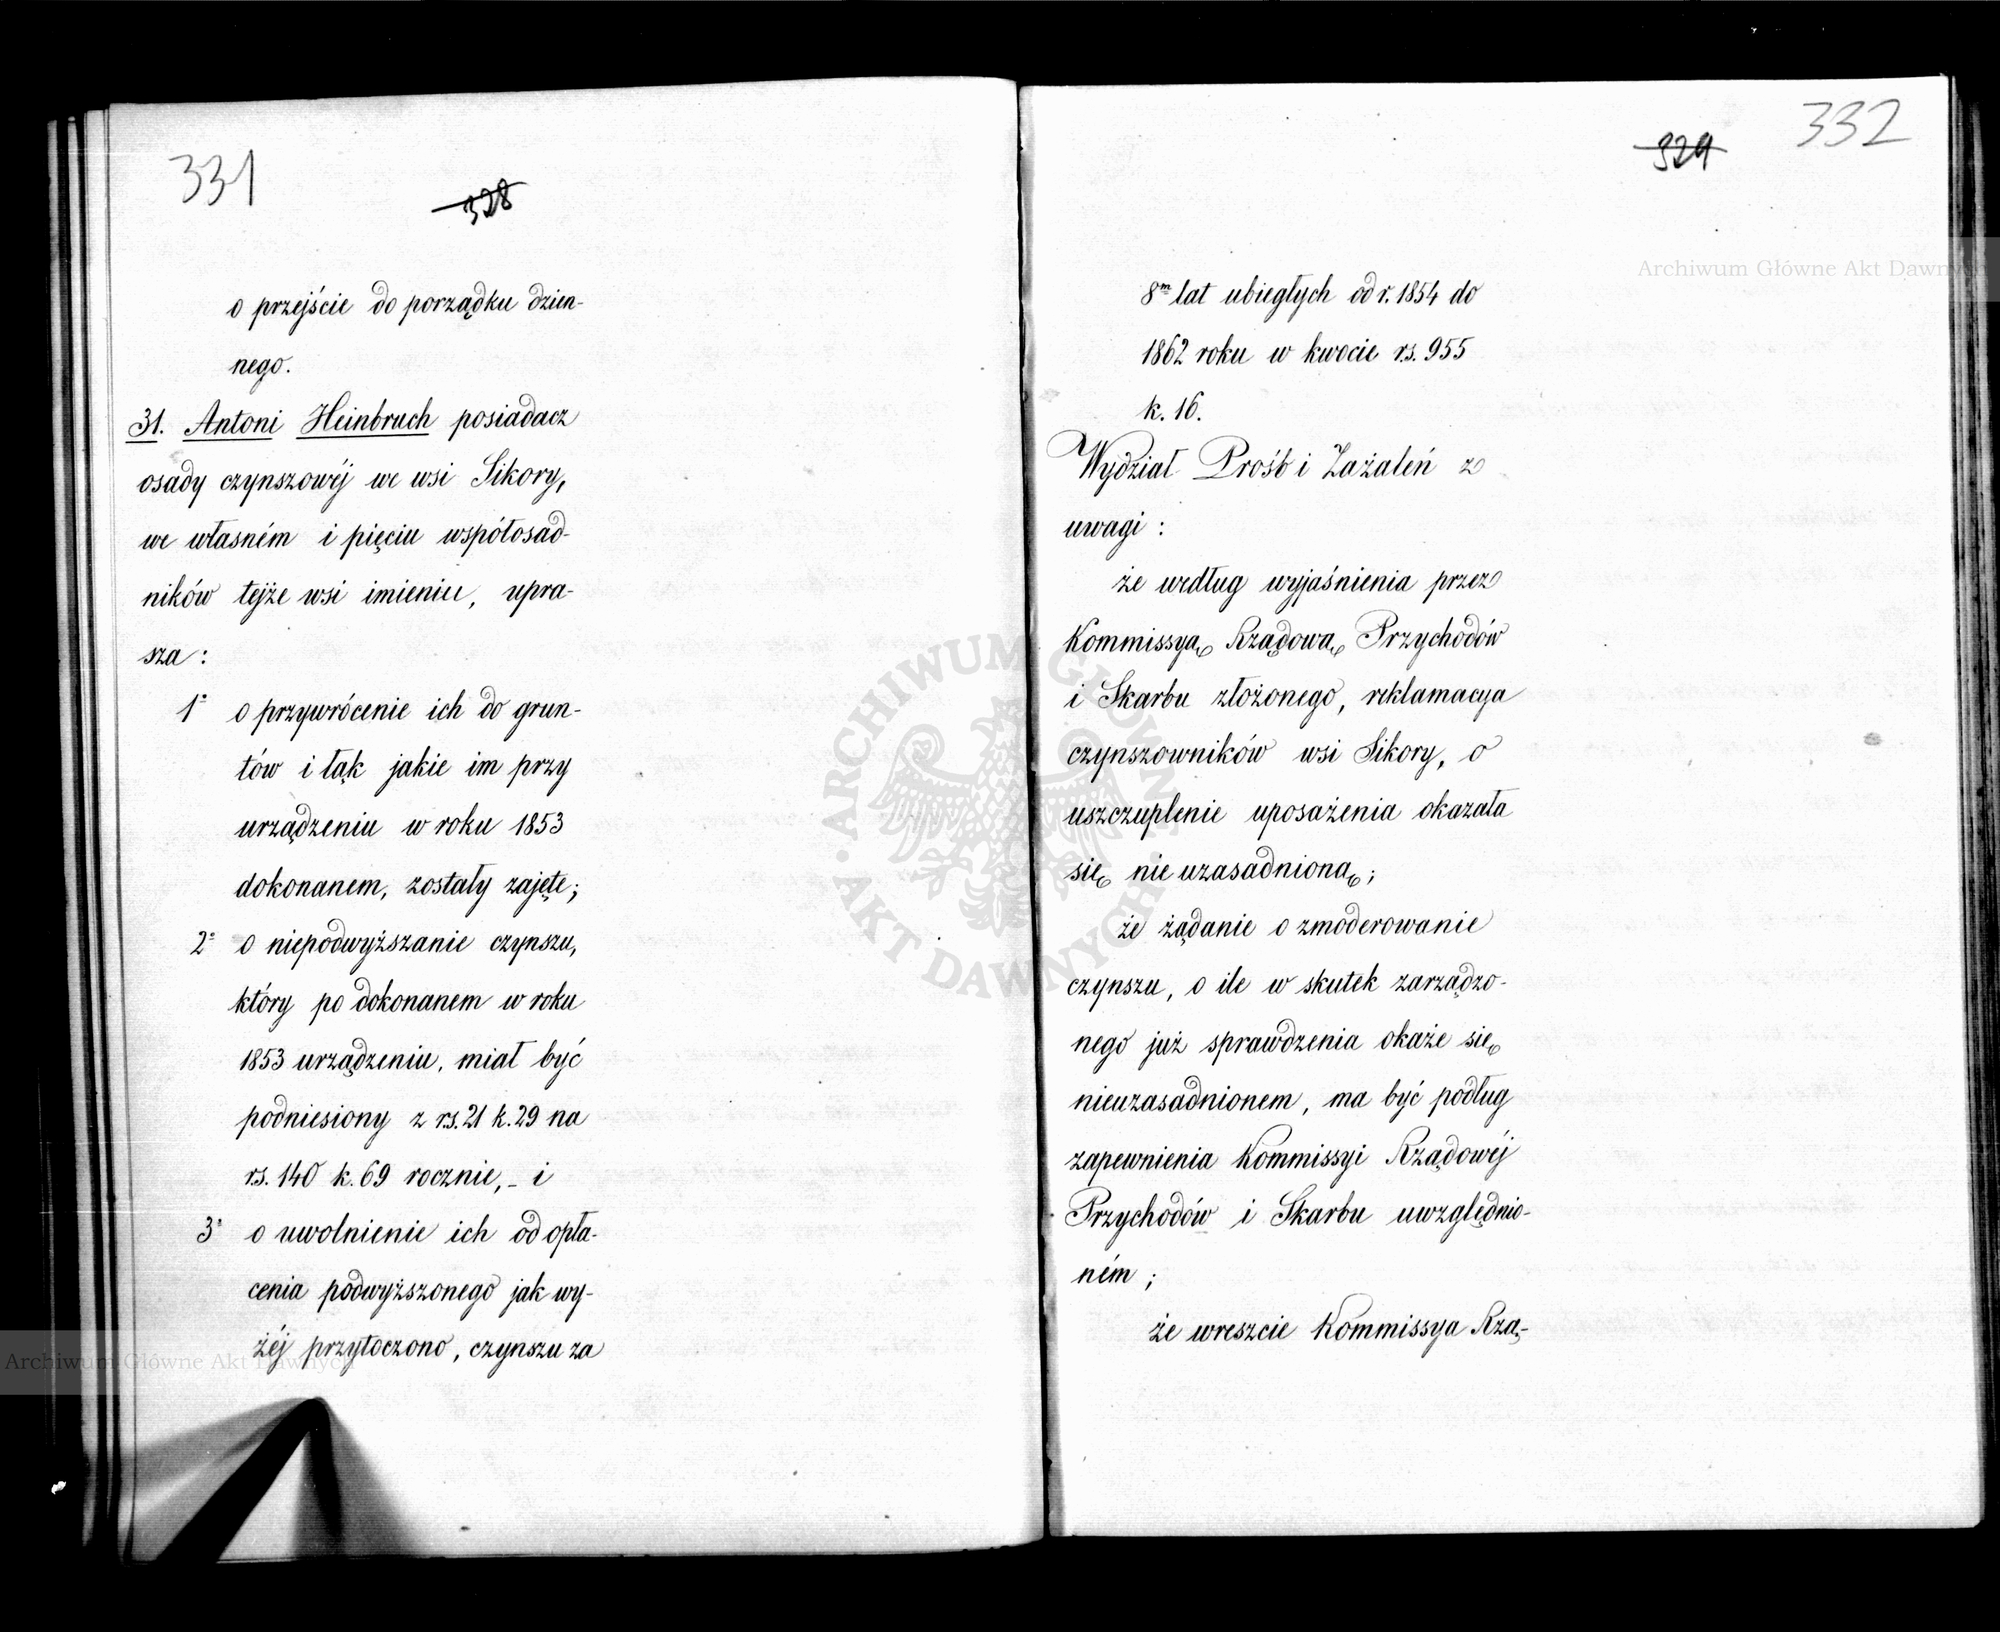 331
328
o przejście do porządku dzien-
nego.
31. Antoni Heinbruch posiadacz
osady czynszowéj we wsi Sikory,
we własném i pięciu współosad-
ników tejże wsi imieniu, upra-
sza:
1° o przywrócenie ich do grun-
tów i łąk jakie im przy
urządzeniu w roku 1853
dokonanem, zostały zajęte;
2° o niepodwyższanie czynszu,
który po dokonanem w roku
1853 urządzeniu, miał być
podniesiony z rs. 21 k. 29 na
rs. 140 k. 69 rocznie, - i
3° o uwolnienie ich od opła-
cenia podwyższonego jak wy-
żéj przytoczono, czynszu za
332
329
8m lat ubiegłych od r. 1854 do
1862 roku w kwocie rs. 955
k. 16.
Wydział Prośb i Zażaleń z
uwagi:
że według wyjaśnienia przez
Kommissyą Rządową Przychodów
i Skarbu złożonego, reklamacya
czynszowników wsi Sikory, o
uszczuplenie uposażenia okazała
się nie uzasadnioną;
że żądanie o zmoderowanie
czynszu, o ile w skutek zarządzo-
nego już sprawdzenia okaże się
nieuzasadnionem, ma być podług
zapewnienia Kommissyi Rządowéj
Przychodów i Skarbu uwzględnio-
ném;
że wreszcie Kommissya Rzą-
Archiwum Główne Akt Dawnych
Archiwum Główne Akt Dawnych
ARCHIWUM GŁÓWNE · AKT DAWNYCH ·